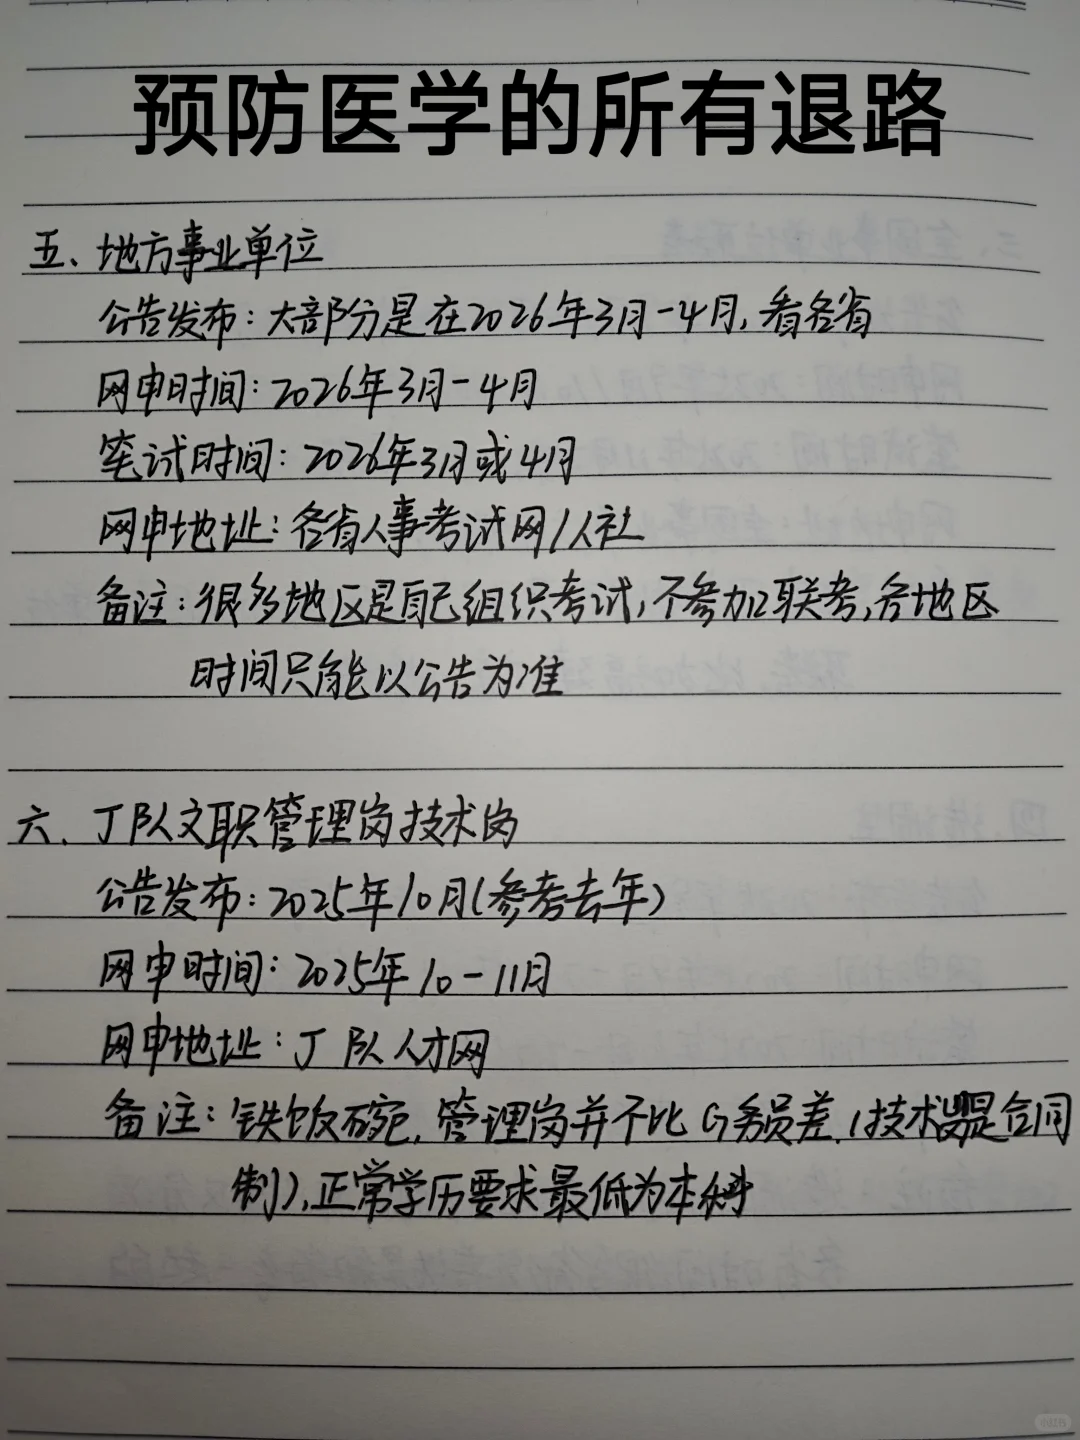 预防医学的所有退路
五、地方事业单位
公告发布：大部分是在2026年3月-4月，看各省
网申时间：2026年3月-4月
笔试时间：2026年3月或4月
网申地址：各省人事考试网/人社
备注：很多地区是自己组织考试，不参加联考，各地区
时间只能以公告为准
六、J队文职管理岗技术岗
公告发布：2025年10月（参考去年）
网申时间：2025年10-11月
网申地址：J队人才网
备注：铁饭碗，管理岗并不比G务员差，（技术岗是合同
制），正常学历要求最低为本科
小红书